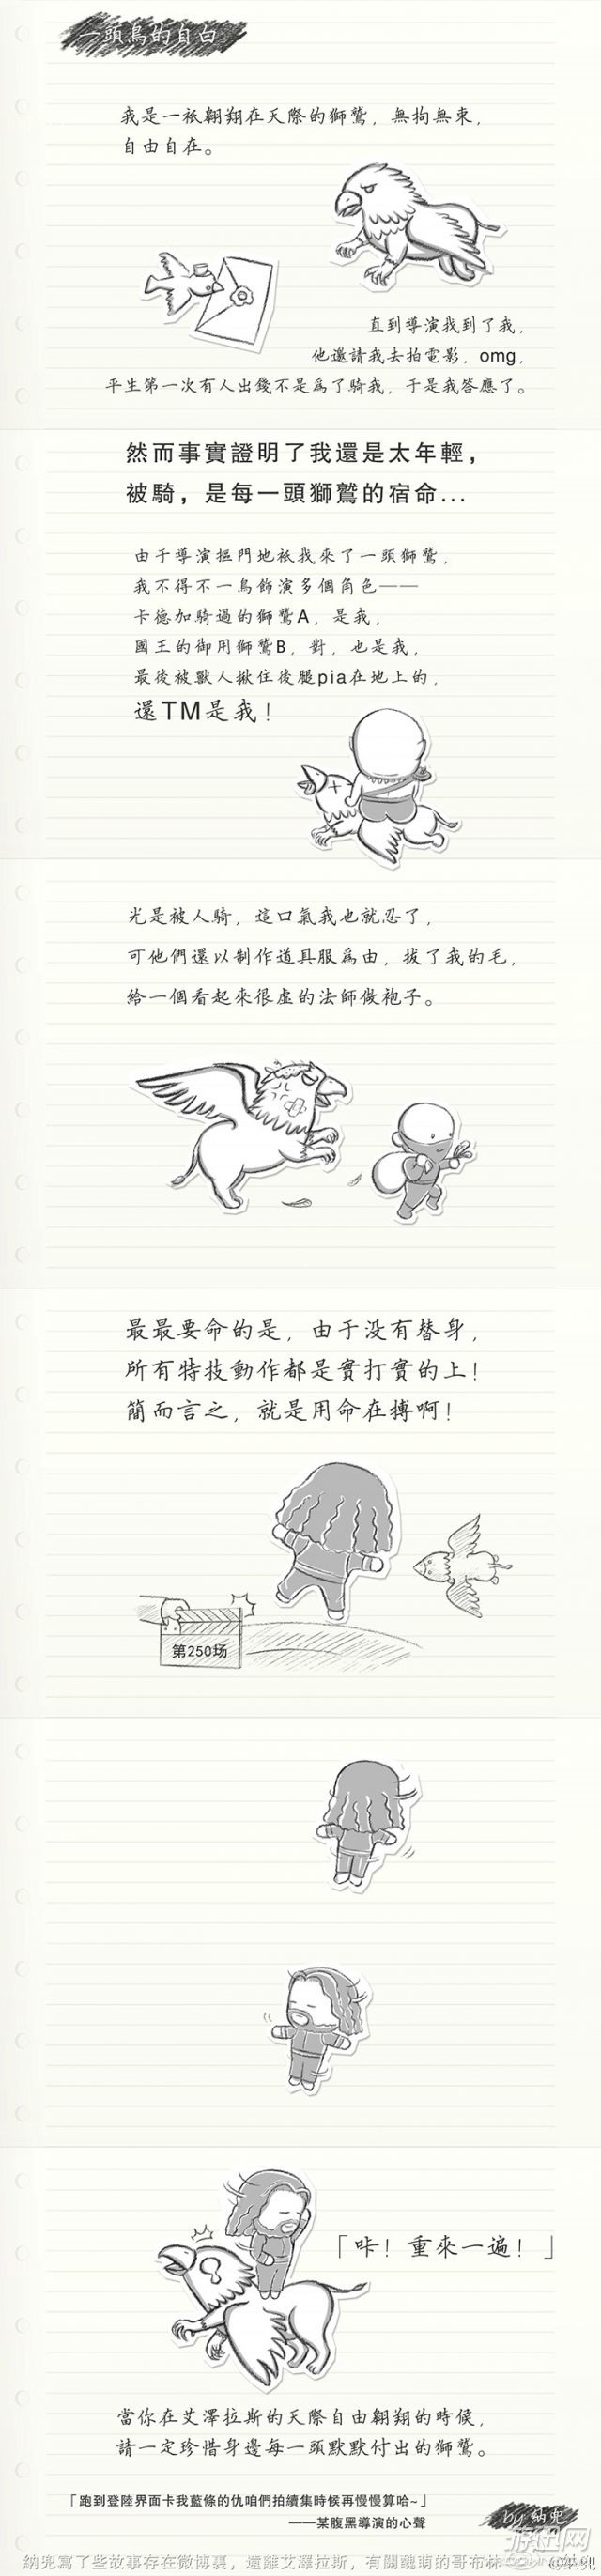 一頭鳥的自白
我是一衹翱翔在天際的獅鷲，無拘無束，
自由自在。
直到導演找到了我，
他邀請我去拍電影，omg，
平生第一次有人出錢不是爲了騎我，于是我答應了。
然而事實證明了我還是太年輕，
被騎，是每一頭獅鷲的宿命...
由于導演摳門地衹找來了一頭獅鷲，
我不得不一鳥飾演多個角色——
卡德加騎過的獅鷲A，是我，
國王的御用獅鷲B，對，也是我，
最後被獸人揪住後腿pia在地上的，
還TM是我！
光是被人騎，這口氣我也就忍了，
可他們還以制作道具服爲由，拔了我的毛，
給一個看起來很虛的法師做袍子。
最最要命的是，由于没有替身，
所有特技動作都是實打實的上！
簡而言之，就是用命在搏啊！
第250场
「咔！重來一遍！」
當你在艾澤拉斯的天際自由翱翔的時候，
請一定珍惜身邊每一頭默默付出的獅鷲。
「跑到登陸界面卡我藍條的仇咱們拍續集時候再慢慢算哈~」
——某腹黑導演的心聲
by 納兜
納兜寫了些故事存在微博裏，遠離艾澤拉斯，有關醜萌的哥布林